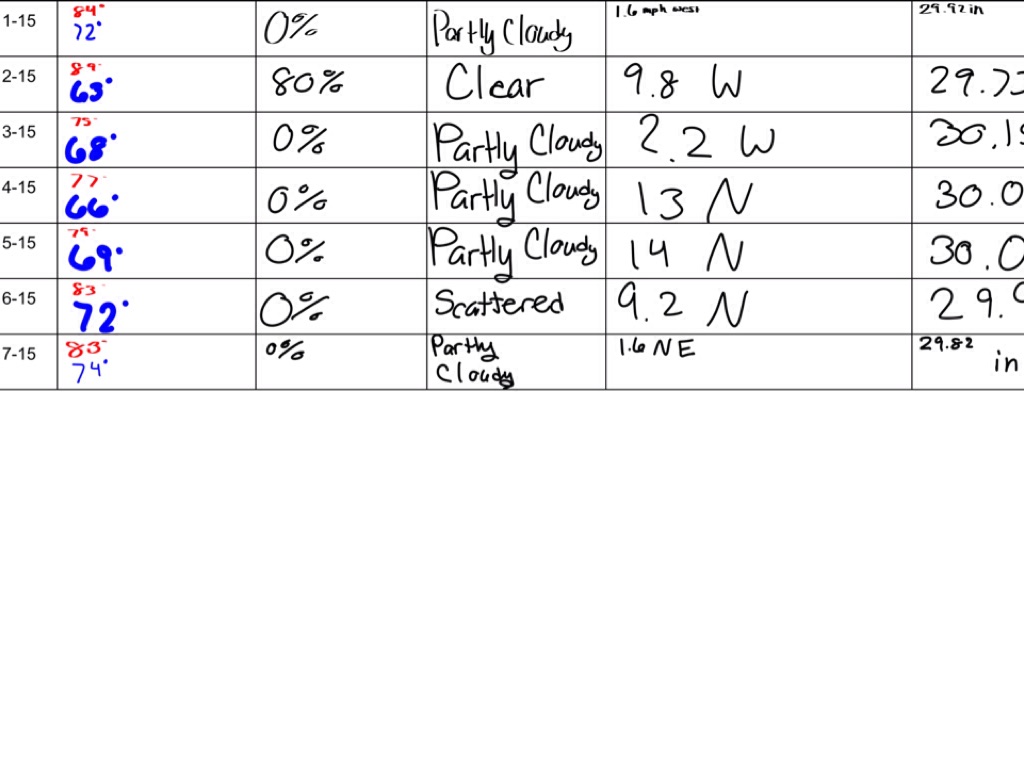 1-15 84° 72° 0% Partly Cloudy 1.6 mph west 29.92 in
2-15 89° 63° 80% Clear 9.8 W
3-15 75° 68° 0% Partly Cloudy 2.2 W
4-15 77° 66° 0% Partly Cloudy 13 N
5-15 79° 69° 0% Partly Cloudy 14 N
6-15 83° 72° 0% Scattered 9.2 N
7-15 83° 74° 0% Partly Cloudy 1.6 NE 29.82 in